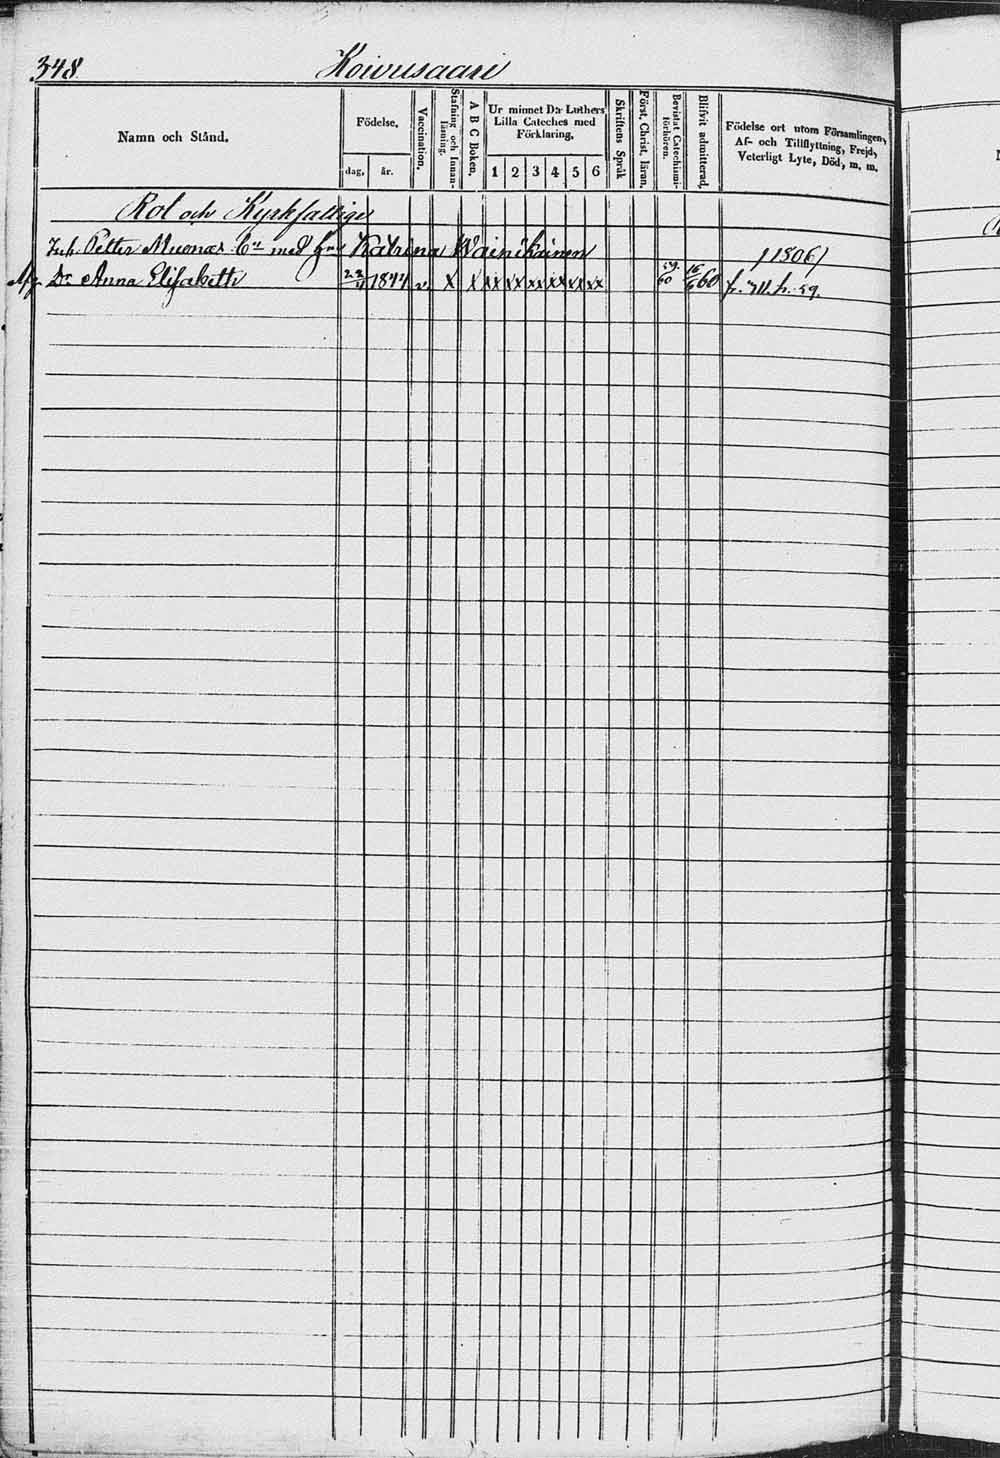 348.
Koivusaari
Namn och Stånd.
Födelse,
dag,
år.
Vaccination.
Stafning och Innanläsning.
A B C Boken.
Ur minnet D:r Luthers Lilla Cateches med Förklaring.
1 2 3 4 5 6
Skriftens Språk
Först. Christ. läran.
Bevistat Catechismiförhören.
Blifvit admitterad.
Födelse ort utom Församlingen,
Af- och Tillflyttning, Frejd,
Veterligt Lyte, Död, m. m.
Rot och Kyrkfattige
Inh. Petter Muonas med Katrina Wainikainen 1806
Dr Anna Elisabeth 1844 v. X X xx xx xx xx xx xx 59. 60 60 59.